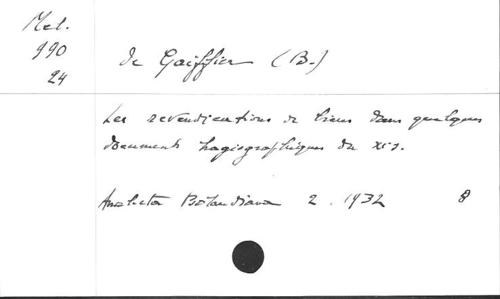 Mel.
990
24
de Gaiffier (B.)
Les revendications de biens dans quelques
documents hagiographiques du XI s.
Analecta Bollandiana 2. 1932 8